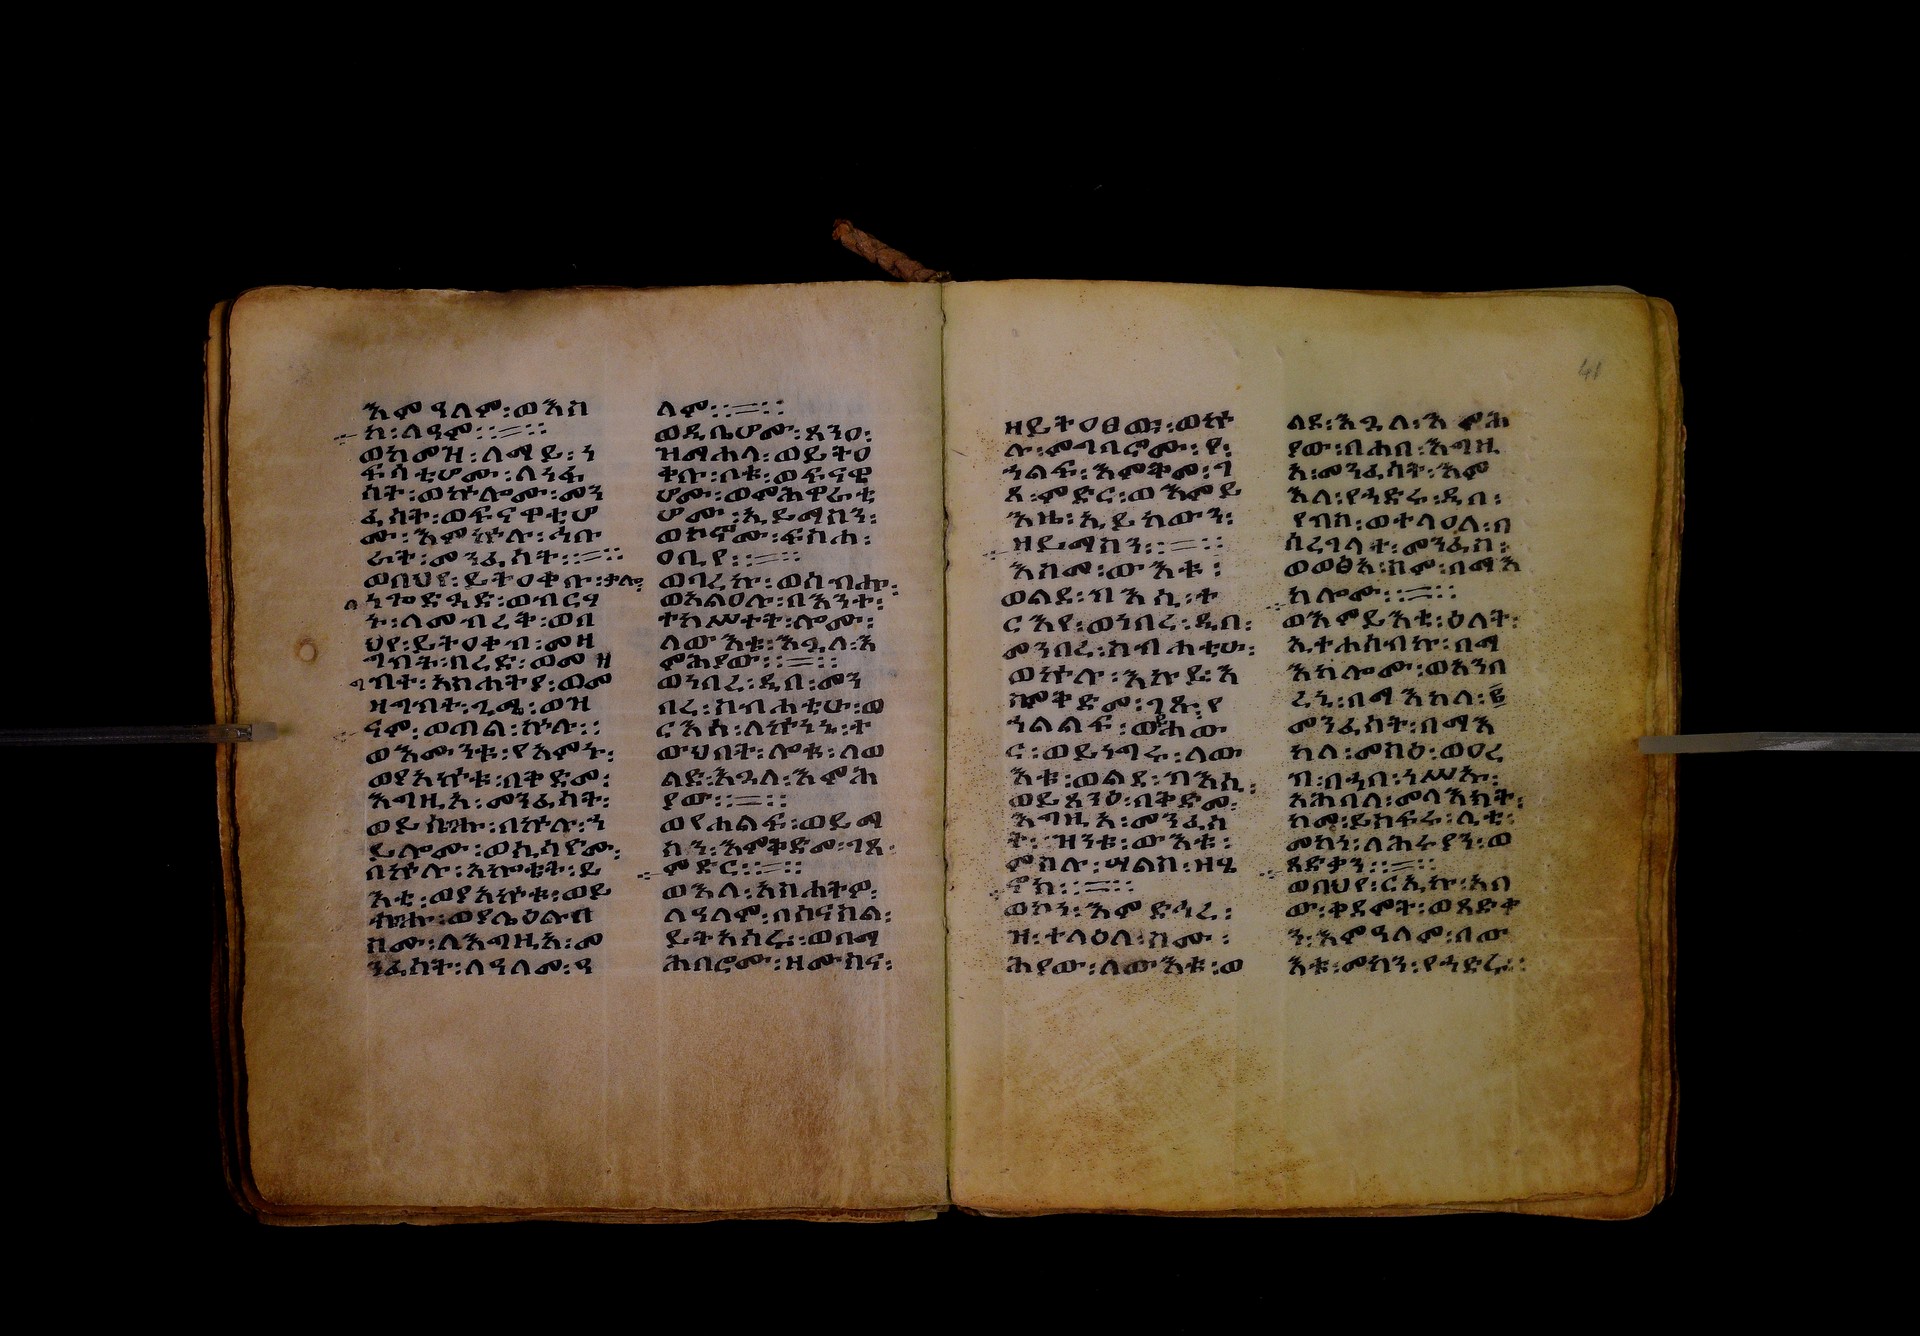 እምዓለም፡ወእስ
ከ፡ለዓም፡፡=፡፡
ወከመዝ፡ለማይ፡ነ
ፍሳቲሆሙ፡ለንፋ
ስት፡ወኵሎሙ፡መን
ፈስት፡ወፍናዋቲሆ
ሙ፡እምኵሉ፡ኅብ
ረት፡መንፈስት፡፡=፡፡
ወበህየ፡ይትዐቀቡ፡ቃለ፡
ነጐድጓድ፡ወብርሃ
ኑ፡ለመብረቅ፡ወበ
ህየ፡ይትዐቀብ፡መዛ
ግብት፡በረድ፡ወመዛ
ግብት፡አስሐትያ፡ወመ
ዛግብት፡ጊሜ፡ወዝ
ናም፡ወጠል፡ኵሉ፡፡
ወእሙንቱ፡የአምኑ፡
ወያአኵቱ፡በቅድመ፡
እግዚአ፡መንፈስት፡
ወይሴብሑ፡በኵሉ፡ኃ
ይሎሙ፡ወሲሳዮሙ፡
በኵሉ፡አኰቴት፡ይ
እቲ፡ወያአኵቱ፡ወይ
ሴብሑ፡ወያሌዕሉ፡በ
ስሙ፡ለእግዚአ፡መ
ንፈስት፡ለዓለመ፡ዓ
ለም፡፡=፡፡
ወዲቤሆሙ፡ጸንዐ፡
ዝማሐላ፡ወይትዐ
ቀቡ፡ቦቱ፡ወፍናዊ
ሆሙ፡ወምሕዋራቲ
ሆሙ፡ኢይማስን፡
ወኮኖሙ፡ፍስሐ፡
ዐቢየ፡፡=፡፡
ወባረኩ፡ወሰብሑ፡
ወአልዐሉ፡በእንተ፡
ተከሥተት፡ሎሙ፡
ለውእቱ፡እጓለ፡እ
ምሕያው፡፡=፡፡
ወነበረ፡ዲበ፡መን
በረ፡ስብሐቲሁ፡ወ
ርእሰ፡ለኵነኔ፡ተ
ውህበት፡ሎቱ፡ለወ
ልድ፡እጓለ፡እምሕ
ያው፡፡=፡፡
ወየሐልፍ፡ወይማ
ስን፡እምቅድመ፡ገጸ፡
ምድር፡፡=፡፡
ወእለ፡አስሐትዎ፡
ለዓለም፡በሰናስል፡
ይትአሰሩ፡ወበማ
ሕበሮሙ፡ዘሙስና፡
41
ዘይትዐፀዉ፡ወኵ
ሉ፡ምግባሮሙ፡የ፡
ኀልፍ፡እምቅመ፡ገ
ጸ፡ምድር፡ወእምይ
እዜ፡ኢይከውን፡
ዘይማስን፡፡=፡፡
እስመ፡ውእቱ፡
ወልደ፡ብእሲ፡ተ
ርእየ፡ወነበረ፡ዲበ፡
መንበረ፡ስብሐቲሁ፡
ወኵሉ፡እኩይ፡እ
ምቅድመ፡ገጹ፡የ
ኀልልፍ፡ወየሐው
ር፡ወይነግሩ፡ለው
እቱ፡ወልደ፡ብእሲ፡
ወይጸንዕ፡በቅድመ፡
እግዚአ፡መንፈስ
ት፡ዝንቱ፡ውእቱ፡
ምስሉ፡ሣልስ፡ዘሄ
ኖክ፡፡=፡፡
ወኮነ፡እምድኅረ፡
ዝ፡ተላዕለ፡ስሙ፡
ሕያው፡ለውእቱ፡ወ
ልደ፡እጓለ፡እምሕ
ያው፡በሐበ፡እግዚ
አ፡መንፈስት፡እም
እለ፡የኃድሩ፡ዲበ፡
የብስ፡ወተላዐለ፡በ
ሰረገላት፡መንፈስ፡
ወወፅአ፡ስም፡በማእ
ከሎሙ፡፡=፡፡
ወእምይእቲ፡ዕለት፡
ኢተሐሰብኩ፡በማ
እከሎሙ፡ወአንበ
ረኒ፡በማእከለ፡፪
መንፈስት፡በማእ
ከለ፡መስዕ፡ወዐረ
ብ፡በኀበ፡ነሥኡ፡
አሕባለ፡መላእክት፡
ከመ፡ይስፍሩ፡ሊቲ፡
መከነ፡ለሕሩያን፡ወ
ጸድቃን፡፡=፡፡
ወበህየ፡ርኢኩ፡አበ
ው፡ቀደምት፡ወጻድቃ
ን፡እምዓለም፡በው
እቱ፡መከን፡የኃድሩ፡፡